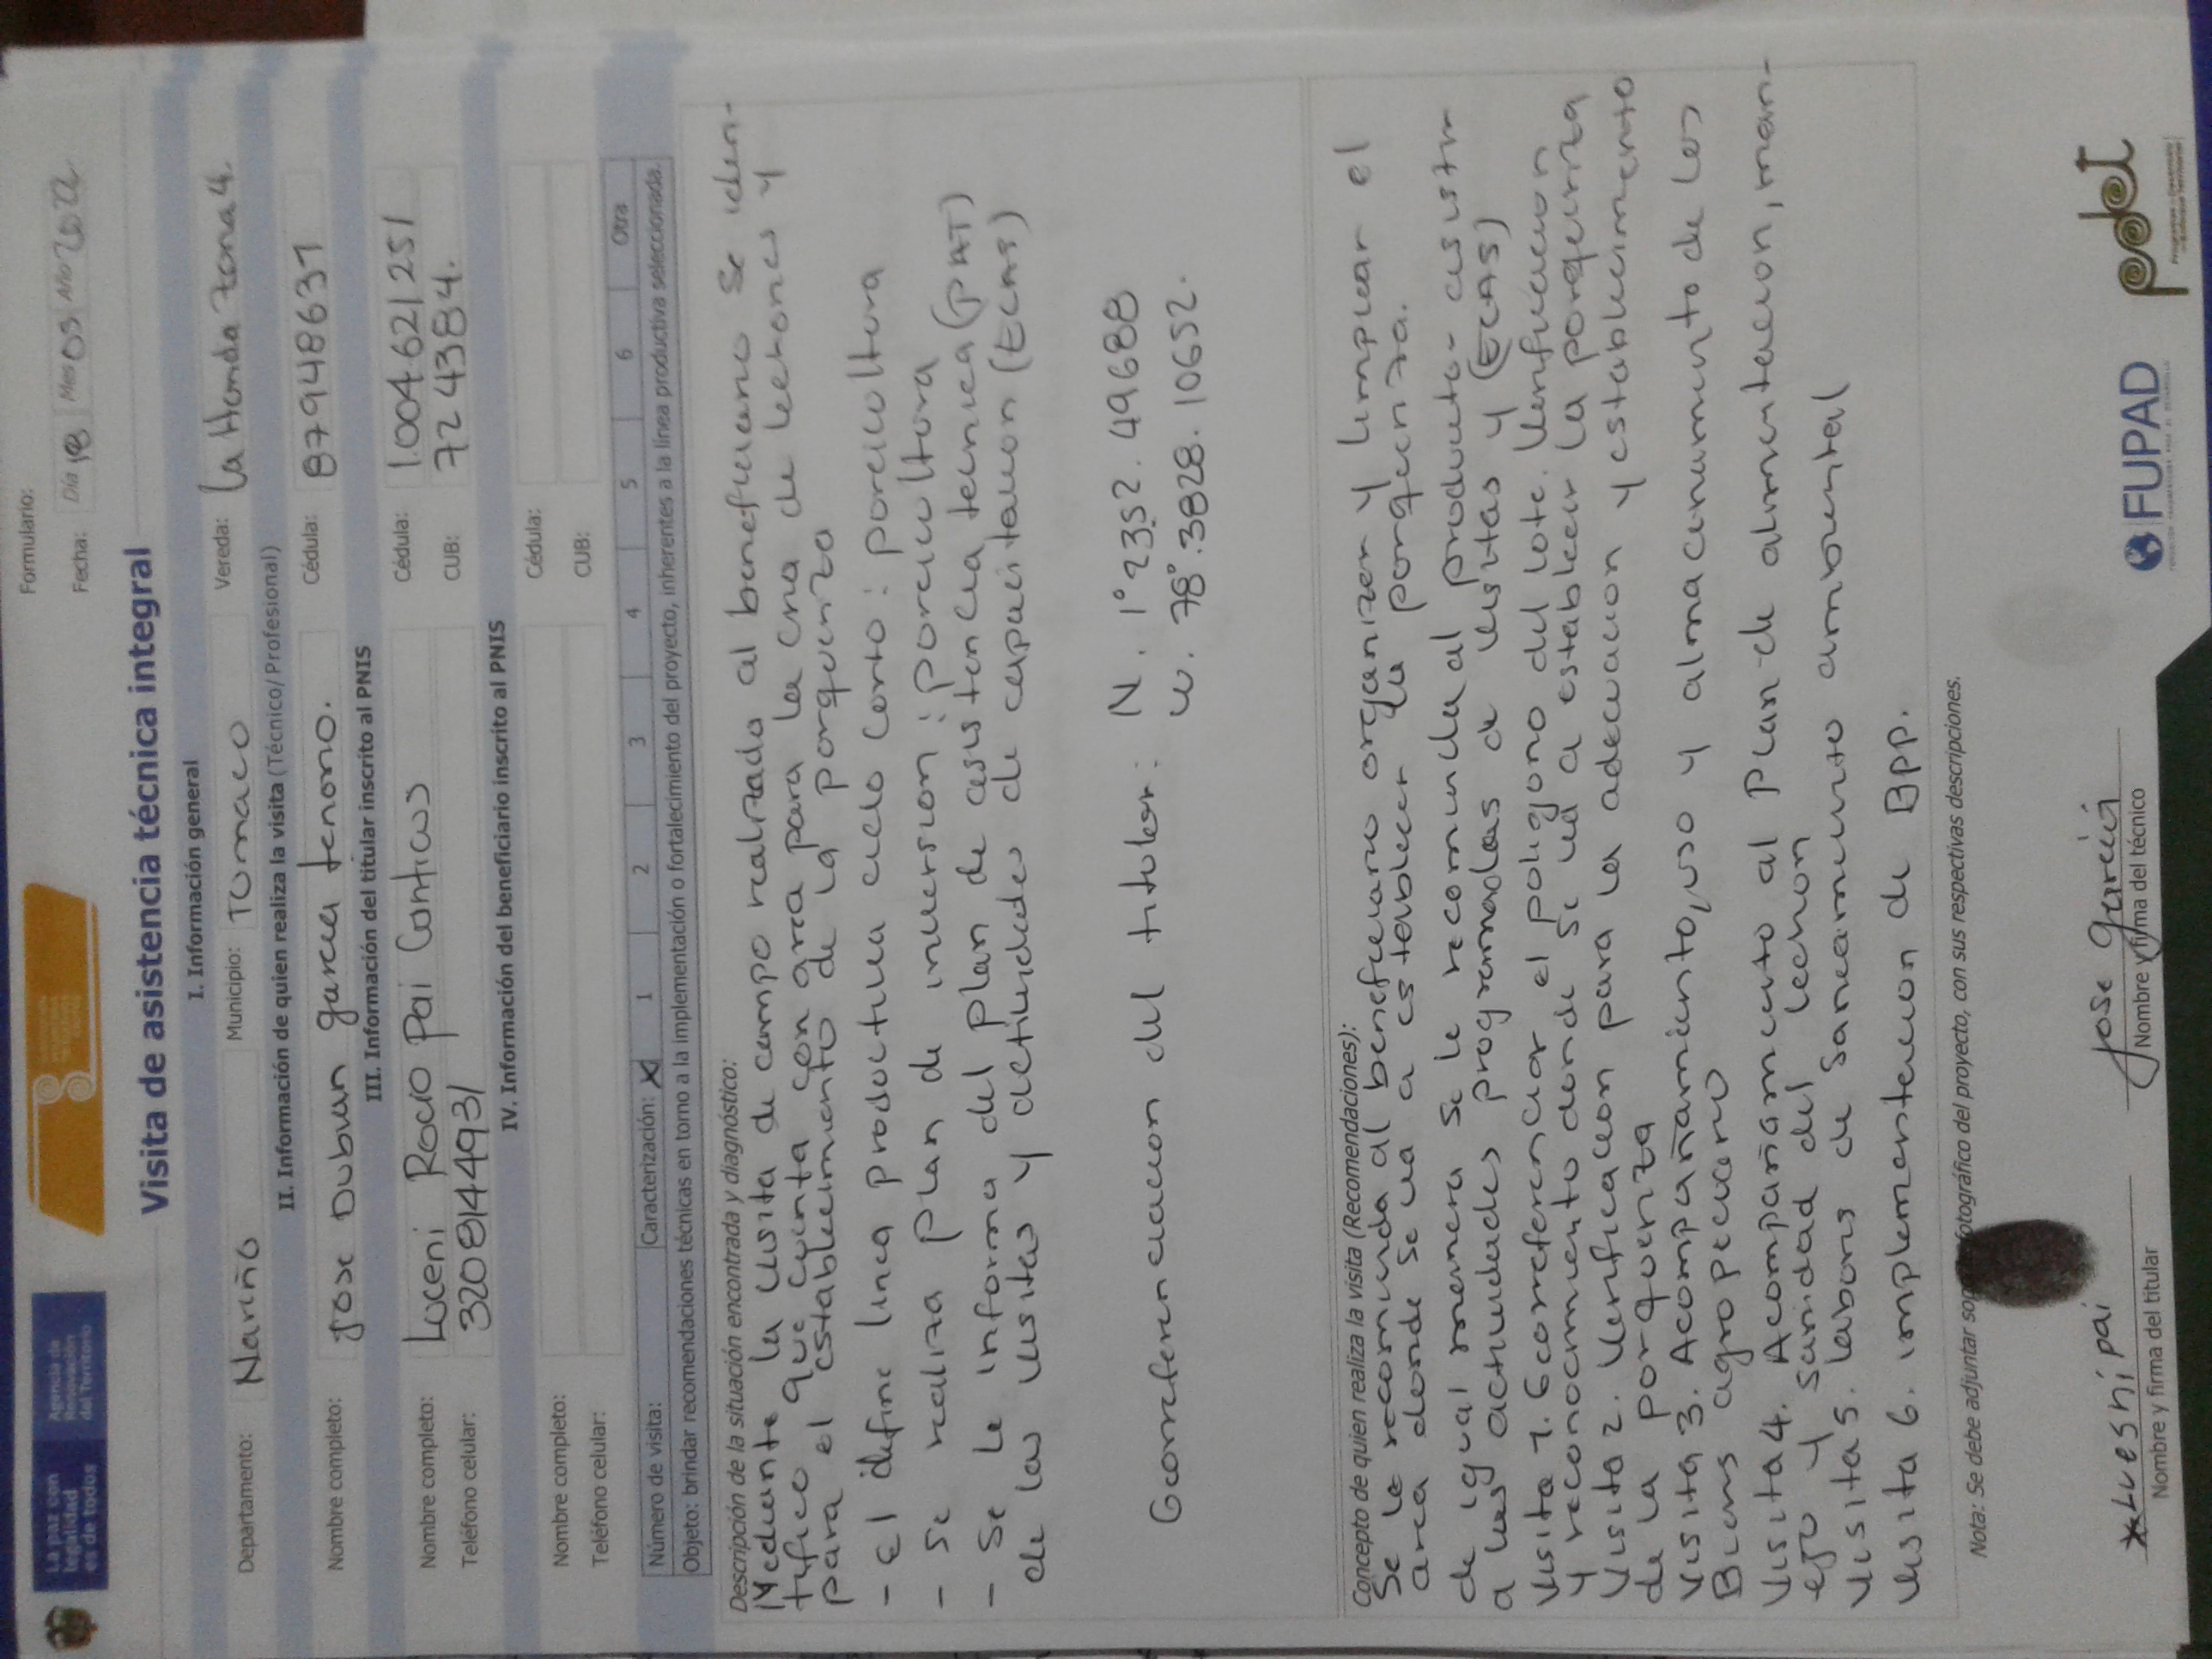 La paz con
legalidad
es de todos
Agencia de
Renovación
del Territorio
Formulario:
Fecha: Día 18 Mes 05 Año 2022
Visita de asistencia técnica integral
I. Información general
Departamento: Nariño Municipio: Tumaco Vereda: la Honda zona 4.
II. Información de quien realiza la visita (Técnico/ Profesional)
Nombre completo: Jose Duban garcia tenorio. Cédula: 87948631
III. Información del titular inscrito al PNIS
Nombre completo: Luceni Rocio Pai Canticus Cédula: 1.004.621251
Teléfono celular: 3208144931 CUB: 724384.
IV. Información del beneficiario inscrito al PNIS
Nombre completo: Cédula:
Teléfono celular: CUB:
Número de visita: Caracterización: X 1 2 3 4 5 6 Otra
Objeto: brindar recomendaciones técnicas en torno a la implementación o fortalecimiento del proyecto, inherentes a la línea productiva seleccionada.
Descripción de la situación encontrada y diagnóstico:
Mediante la visita de campo realizada al beneficiario se iden-
tifico que cuenta con area para la cria de lechones y
para el establecimiento de la porqueriza
- El define linea productiva ciclo corto: porcicultura
- Se realiza plan de inversion: porcicultura
- Se le informa del plan de asistencia tecnica (PAT)
de las visitas y actividades de capacitacion (ECAS)
Georeferenciacion del titular: N. 1° 2352. 49688
W. 78°.3828. 10652.
Concepto de quien realiza la visita (Recomendaciones):
Se le recomienda al beneficiario organizar y limpiar el
area donde se va a establecer la porqueriza.
de igual manera se le recomienda al productor asistir
a las actividades programadas de visitas y (ECAS)
Visita 1. Georreferenciar el poligono del lote. Verificacion
y reconocimiento donde se va a establecer la porqueriza
Visita 2. Verificacion para la adecuacion y establecimiento
de la porqueriza
Visita 3. Acompañamiento, uso y almacenamiento de los
Bienes agropecuario
Visita 4. Acompañamiento al plan de alimentacion, man-
ejo y sanidad del lechon
Visita 5. labores de saneamiento ambiental
Visita 6. implementacion de BPP.
Nota: Se debe adjuntar soporte fotográfico del proyecto, con sus respectivas descripciones.
*Lueshi pai
Nombre y firma del titular
Jose García
Nombre y firma del técnico
FUPAD
pdet